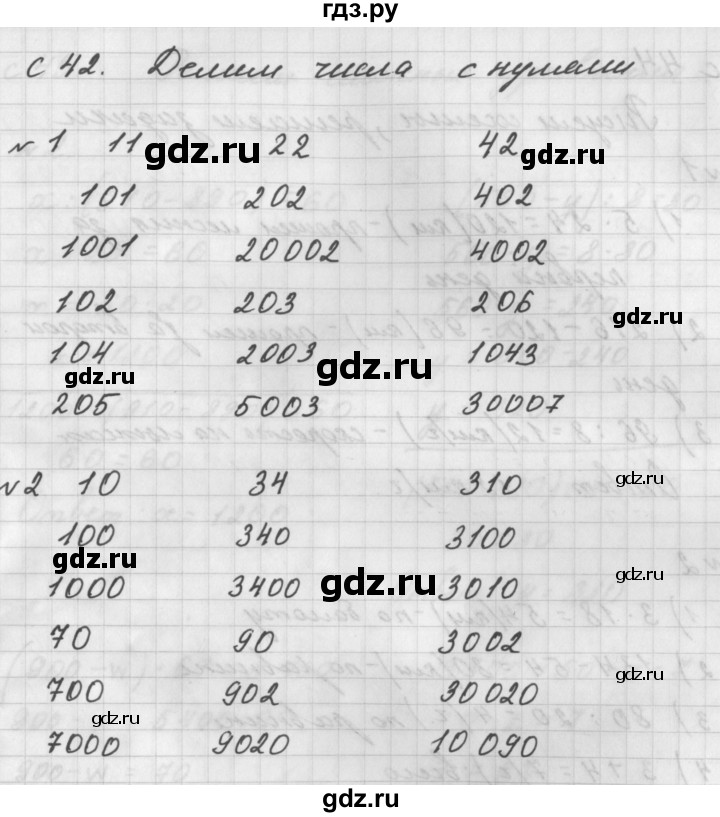 гдз.ру
с 42. Делим числа с нулями
№1 11 22 42
gdz.ru gdz.ru
101 202 402
1001 20002 4002
102 203 206
gdz.ru
104 2003 1043
gdz.ru gdz.ru
205 5003 30007
№2 10 34 310
gdz.ru
100 340 3100
gdz.ru
1000 3400 3010
gdz.ru gdz.ru
70 90 3002
700 902 30020
gdz.ru gdz.ru
7000 9020 10 090
gdz.ru